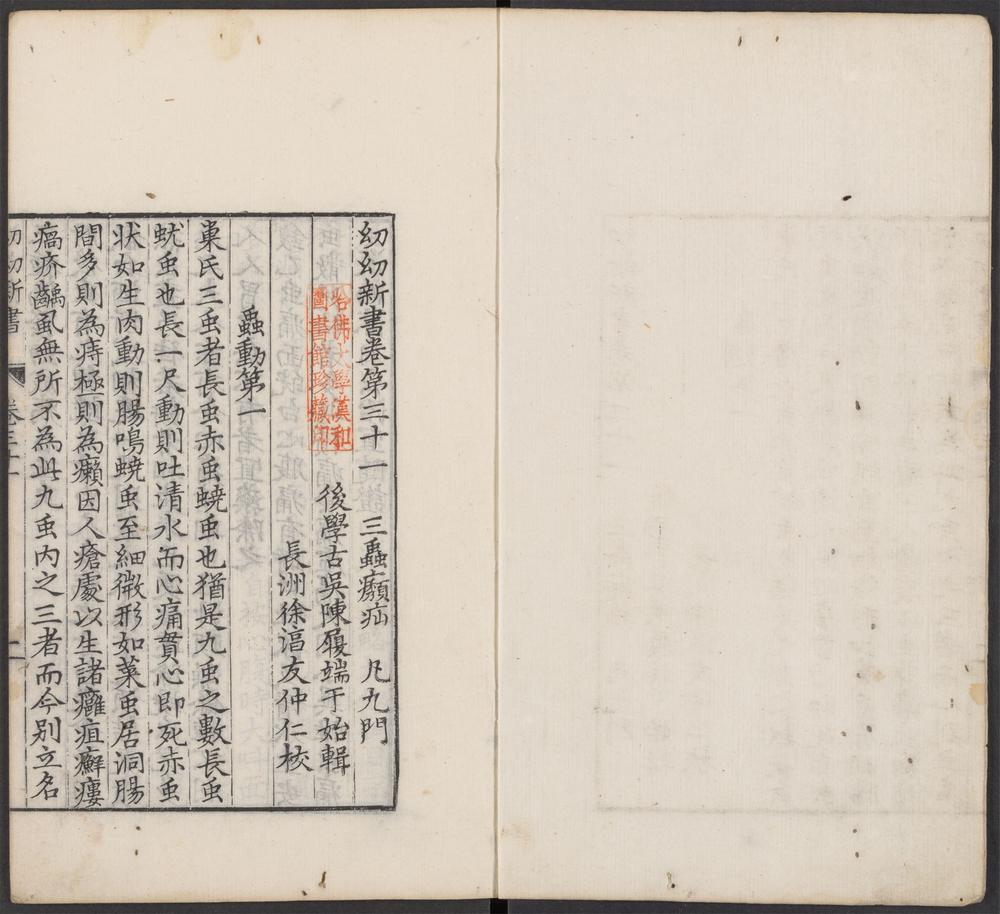 幼幼新書卷第三十一 三蟲㿗疝 凡九門
後學古吳陳履端于始輯
長洲徐濇友仲仁校
哈佛大學漢和
圖書館珍藏印
蟲動第一
巢氏三虫者長虫赤虫蟯虫也猶是九虫之數長虫
蚘虫也長一尺動則吐清水而心痛貫心即死赤虫
状如生肉動則腸鳴蟯虫至細微形如菜虫居洞腸
間多則為痔極則為癩因人瘡處以生諸癰疽癬瘻
瘑疥齲虱無所不為此九虫内之三者而今别立名
幼幼新書 卷三十一 一